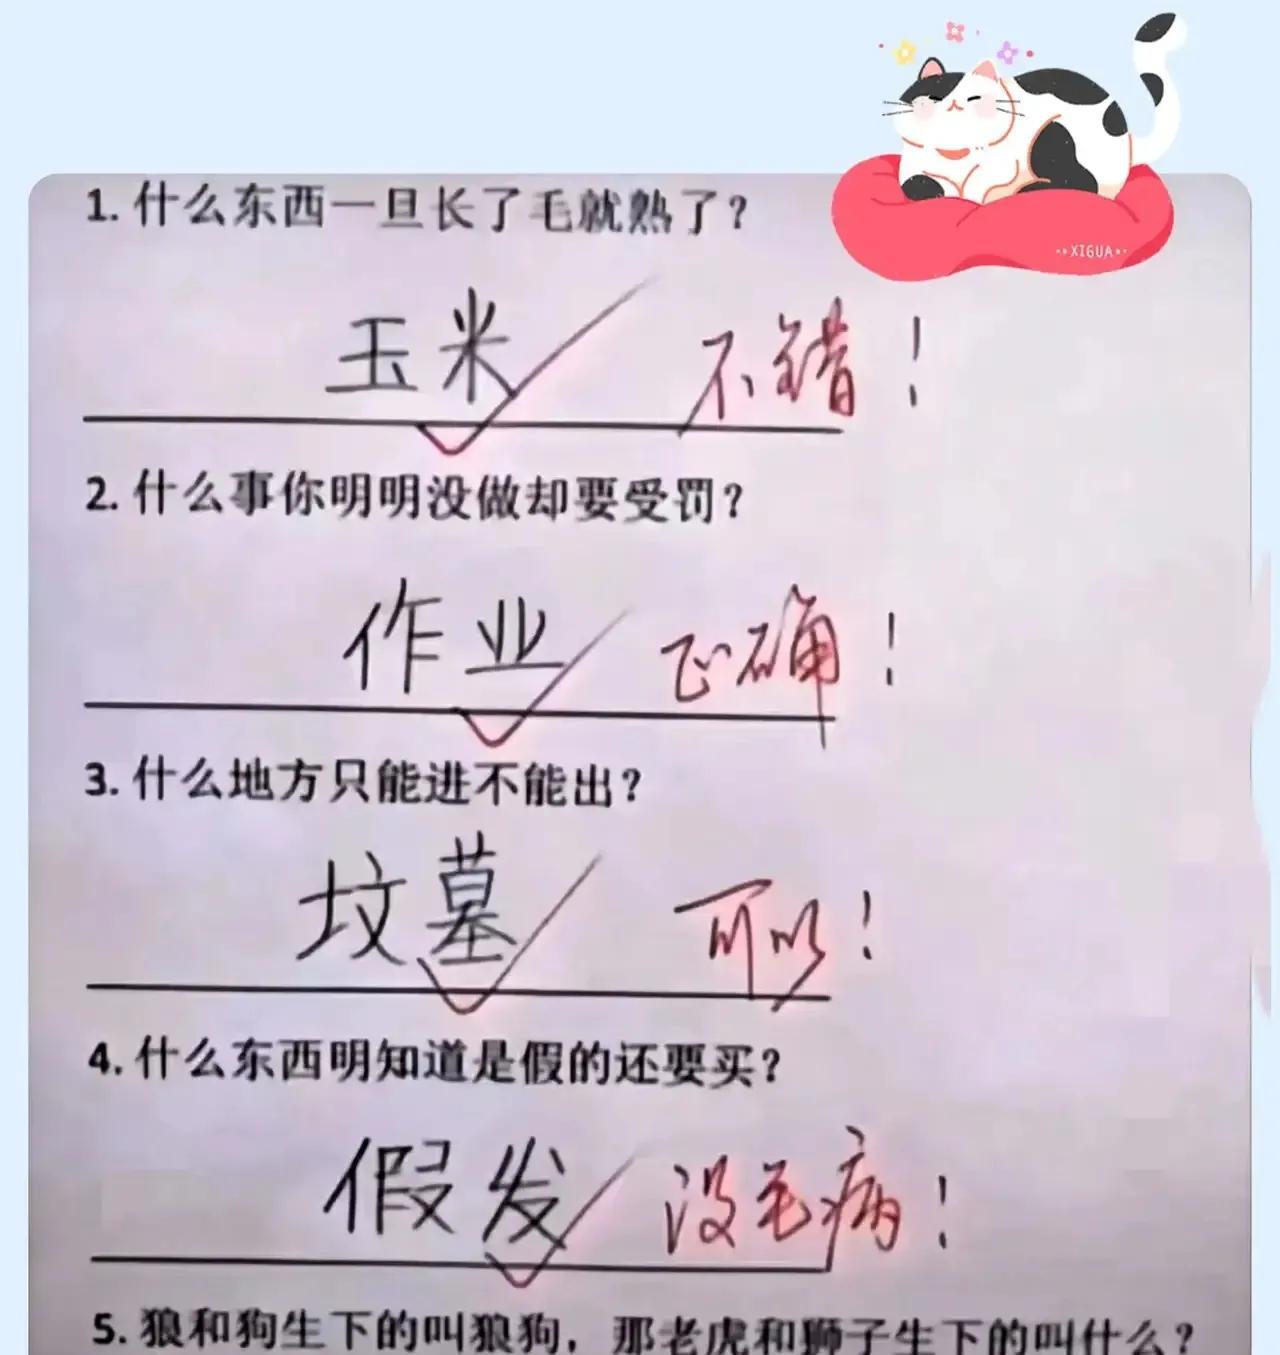 ··XIGUA··
1. 什么东西一旦长了毛就熟了？
玉米 不错！
2. 什么事你明明没做却要受罚？
作业 正确！
3. 什么地方只能进不能出？
坟墓 可以！
4. 什么东西明知道是假的还要买？
假发 没毛病！
5. 狼和狗生下的叫狼狗，那老虎和狮子生下的叫什么？